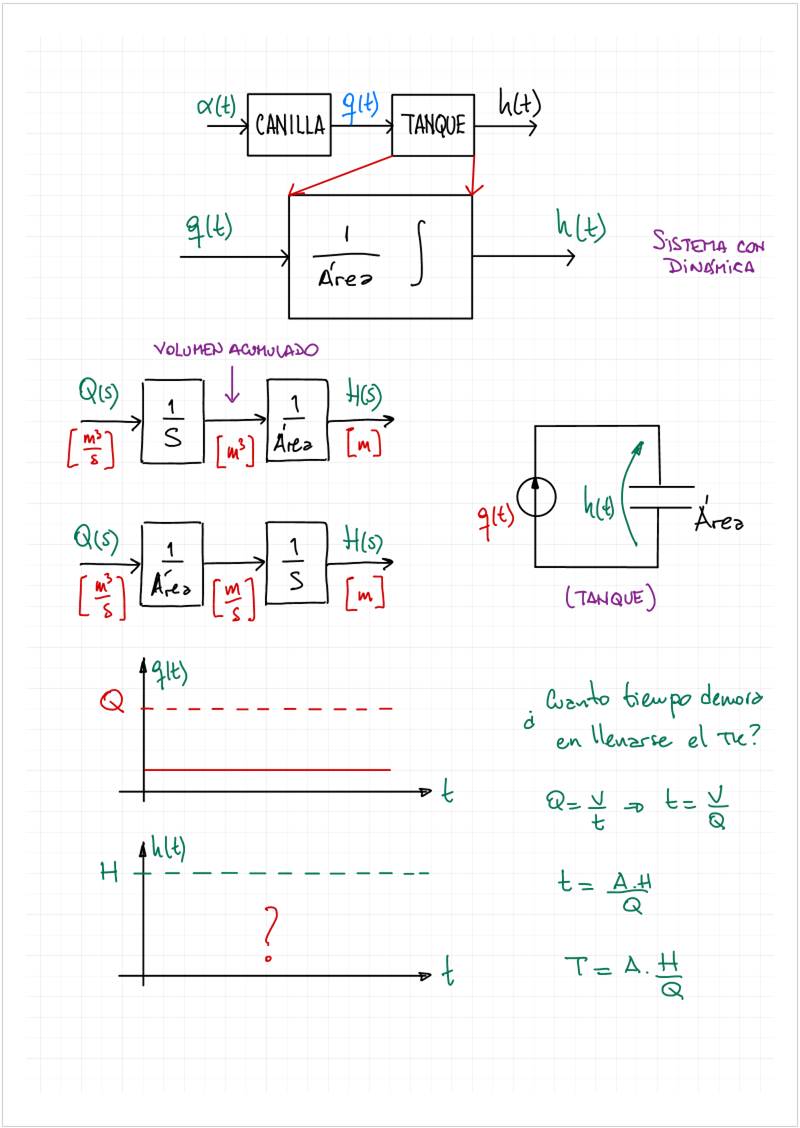 α(t) CANILLA q(t) TANQUE h(t)
q(t) 1/Área ∫ h(t)
SISTEMA CON
DINÁMICA
VOLUMEN ACUMULADO
Q(s) 1/S 1/Área H(s)
[m³/s] [m³] [m]
Q(s) 1/Área 1/S H(s)
[m³/s] [m/s] [m]
q(t) h(t) Área
(TANQUE)
q(t)
Q
t
h(t)
H
?
t
¿Cuanto tiempo demora
en llenarse el TK?
Q = V/t ⇒ t = V/Q
t = A.H/Q
T = A. H/Q